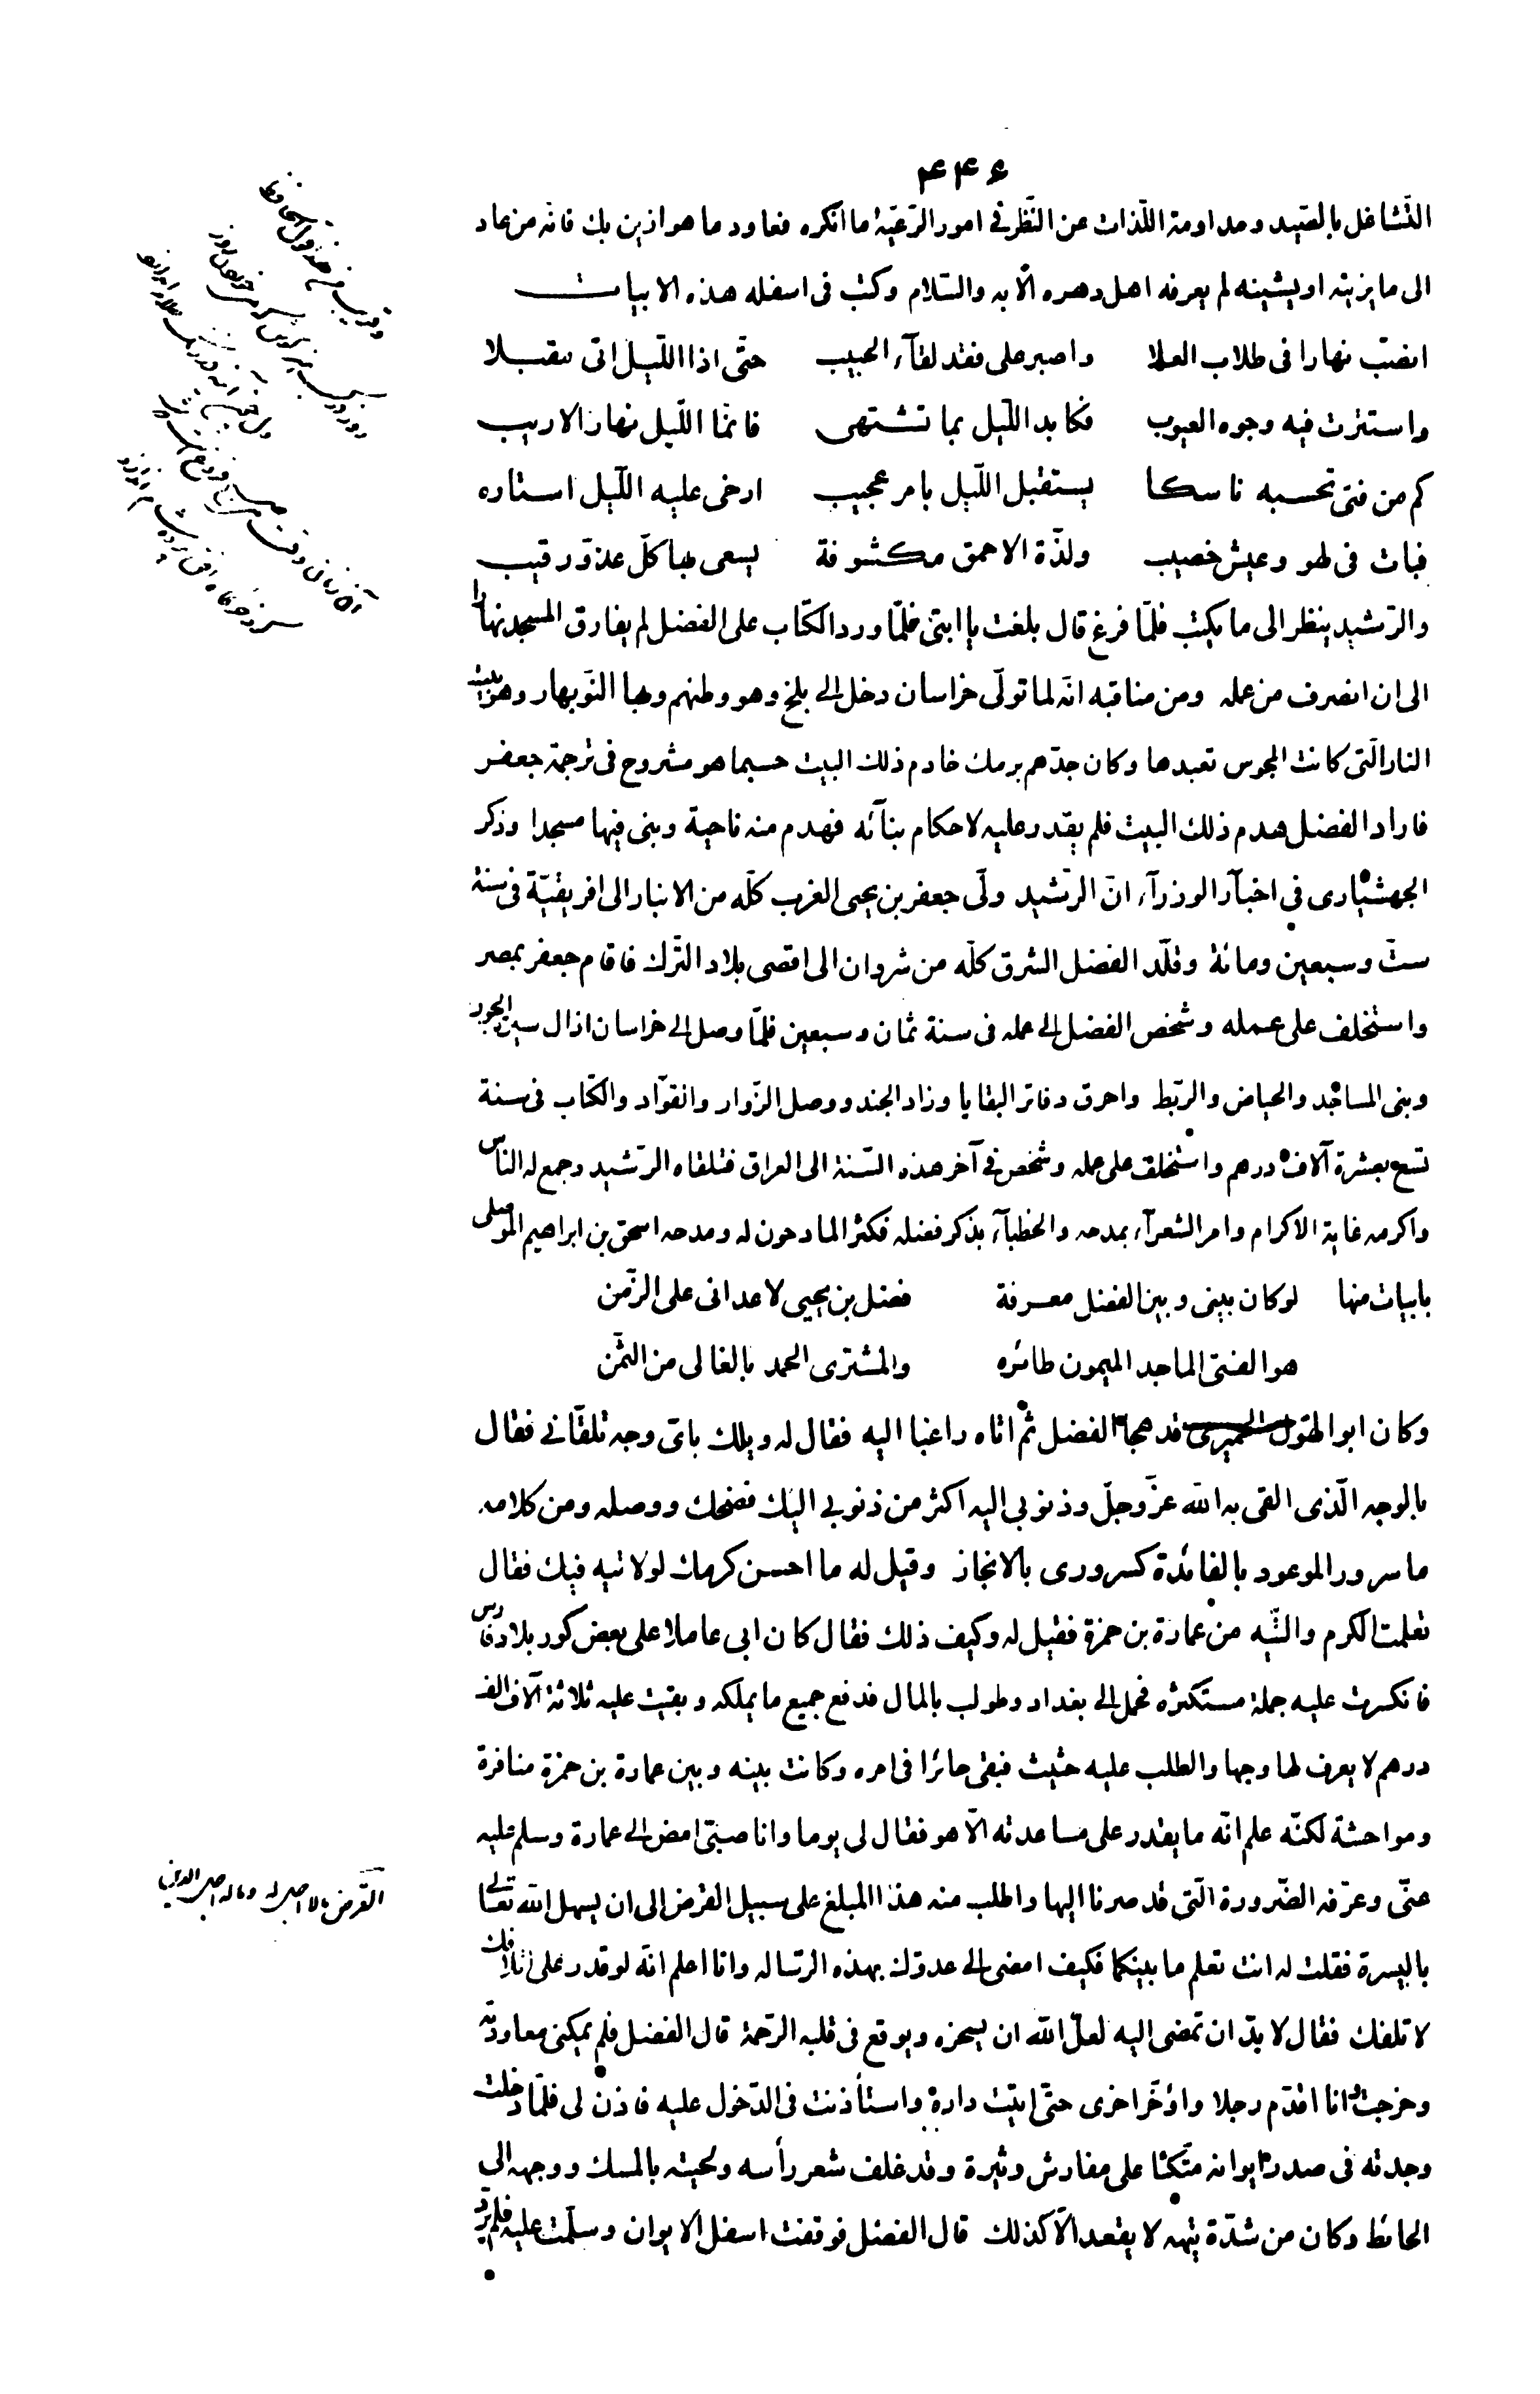 ۴۴۶
التّشاغل بالصّيد ومداومة اللّذات عن النّظر فى امور الرّعيّة ما انكره فعاود ما هو ازين بك فانّه من عاد
الى ما يزينه او يشينه لم يعرفه اهل دهره الّا به والسّلام وكتب فى اسفله هذه الابيات
انصب نهارا فى طلاب العلا واصبر على فقد لقآء الحبيب حتّى اذا اللّيل اتى مقبلا
واستترت فيه وجوه العيوب فكابد اللّيل بما تشتهى فانّما اللّيل نهار الاريب
كم من فتى تحسبه ناسكا يستقبل اللّيل بامر عجيب ارخى عليه اللّيل استاره
فبات فى لهو وعيش خصيب ولذّة الاحمق مكشوفة يسعى بها كلّ عدوّ رقيب
والرّشيد ينظر الى ما يكتب فلمّا فرغ قال بلغت يا ابتى فلمّا ورد الكتاب على الفضل لم يفارق المسجد نهارا
الى ان انصرف من عمله ومن مناقبه انّه لما تولّى خراسان دخل الى بلخ وهو وطنهم وبها النّوبهار وهو بيت
النار الّتى كانت المجوس تعبدها وكان جدّهم برمك خادم ذلك البيت حسبما هو مشروح فى ترجمة جعفر
فاراد الفضل هدم ذلك البيت فلم يقدر عليه لاحكام بنآئه فهدم منه ناحية وبنى فيها مسجدا وذكر
الجهشيارى فى اخبار الوزرآء انّ الرّشيد ولّى جعفر بن يحيى الغرب كلّه من الانبار الى افريقيّة فى سنة
ستّ وسبعين ومائة وقلّد الفضل الشرق كلّه من شروان الى اقصى بلاد التّرك فاقام جعفر بمصر
واستخلف على عمله وشخص الفضل الى عمله فى سنة ثمان وسبعين فلمّا وصل الى خراسان ازال سيرة الجور
وبنى المساجد والحياض والرّبط واحرق دفاتر البقايا وزاد الجند ووصل الزّوار والقوّاد والكتّاب فى سنة
تسع بعشرة آلاف درهم واستخلف على عمله وشخص فى آخر هذه السّنة الى العراق فتلقاه الرّشيد وجمع له الناس
واكرمه غاية الاكرام وامر الشعرآء بمدحه والخطبآء بذكر فضله فكثر المادحون له ومدحه اسحق بن ابراهيم الموصلى
بابيات منها لو كان بينى وبين الفضل معرفة فضل بن يحيى لاعدانى على الزّمن
هو الفتى الماجد الميمون طائره والمشترى الحمد بالغالى من الثّمن
وكان ابو الهول الحميرى قد هجا الفضل ثمّ اتاه راغبا اليه فقال له ويلك باىّ وجه تلقانى فقال
بالوجه الّذى القى به الله عزّ وجلّ وذنوبى اليه اكثر من ذنوبى اليك فضحك ووصله ومن كلامه
ما سرور الموعود بالفائدة كسرورى بالانجاز وقيل له ما احسن كرمك لولا تيه فيك فقال
تعلمت الكرم والتّيه من عمارة بن حمزة فقيل له وكيف ذلك فقال كان ابى عاملا على بعض كور بلاد فارس
فانكسرت عليه جملة مستكثره فحمل الى بغداد وطولب بالمال فدفع جميع ما يملكه وبقيت عليه ثلاثة آلاف الف
درهم لا يعرف لها وجها والطلب عليه حثيث فبقى حائرا فى امره وكانت بينه وبين عمارة بن حمزة منافرة
ومواحشة لكنّه علم انّه ما يقدر على مساعدته الّا هو فقال لى يوما وانا صبىّ امض الى عمارة وسلم عليه
عنّى وعرّفه الضّرورة الّتى قد صرنا اليها واطلب منه هذا المبلغ على سبيل القرض الى ان يسهل الله تعالى
باليسرة فقلت له انت تعلم ما بينكما فكيف امضى الى عدوّك بهذه الرّساله وانا اعلم انّه لو قدر على اتلافك
لا تلفك فقال لا بدّ ان تمضى اليه لعلّ الله ان يسخره ويوقع فى قلبه الرّحمة قال الفضل فلم يمكنى معاودته
وخرجت وانا اقدّم رجلا واؤخّر اخرى حتّى اتيت داره واستأذنت فى الدّخول عليه فاذن لى فلمّا دخلت
وجدته فى صدر ايوانه متّكئا على مفارش وثيرة وقد غلف شعر رأسه ولحيته بالمسك ووجهه الى
الحائط وكان من شدّة تيهه لا يقعد الّا كذلك قال الفضل فوقفت اسفل الايوان وسلّمت عليه فلم يردّ